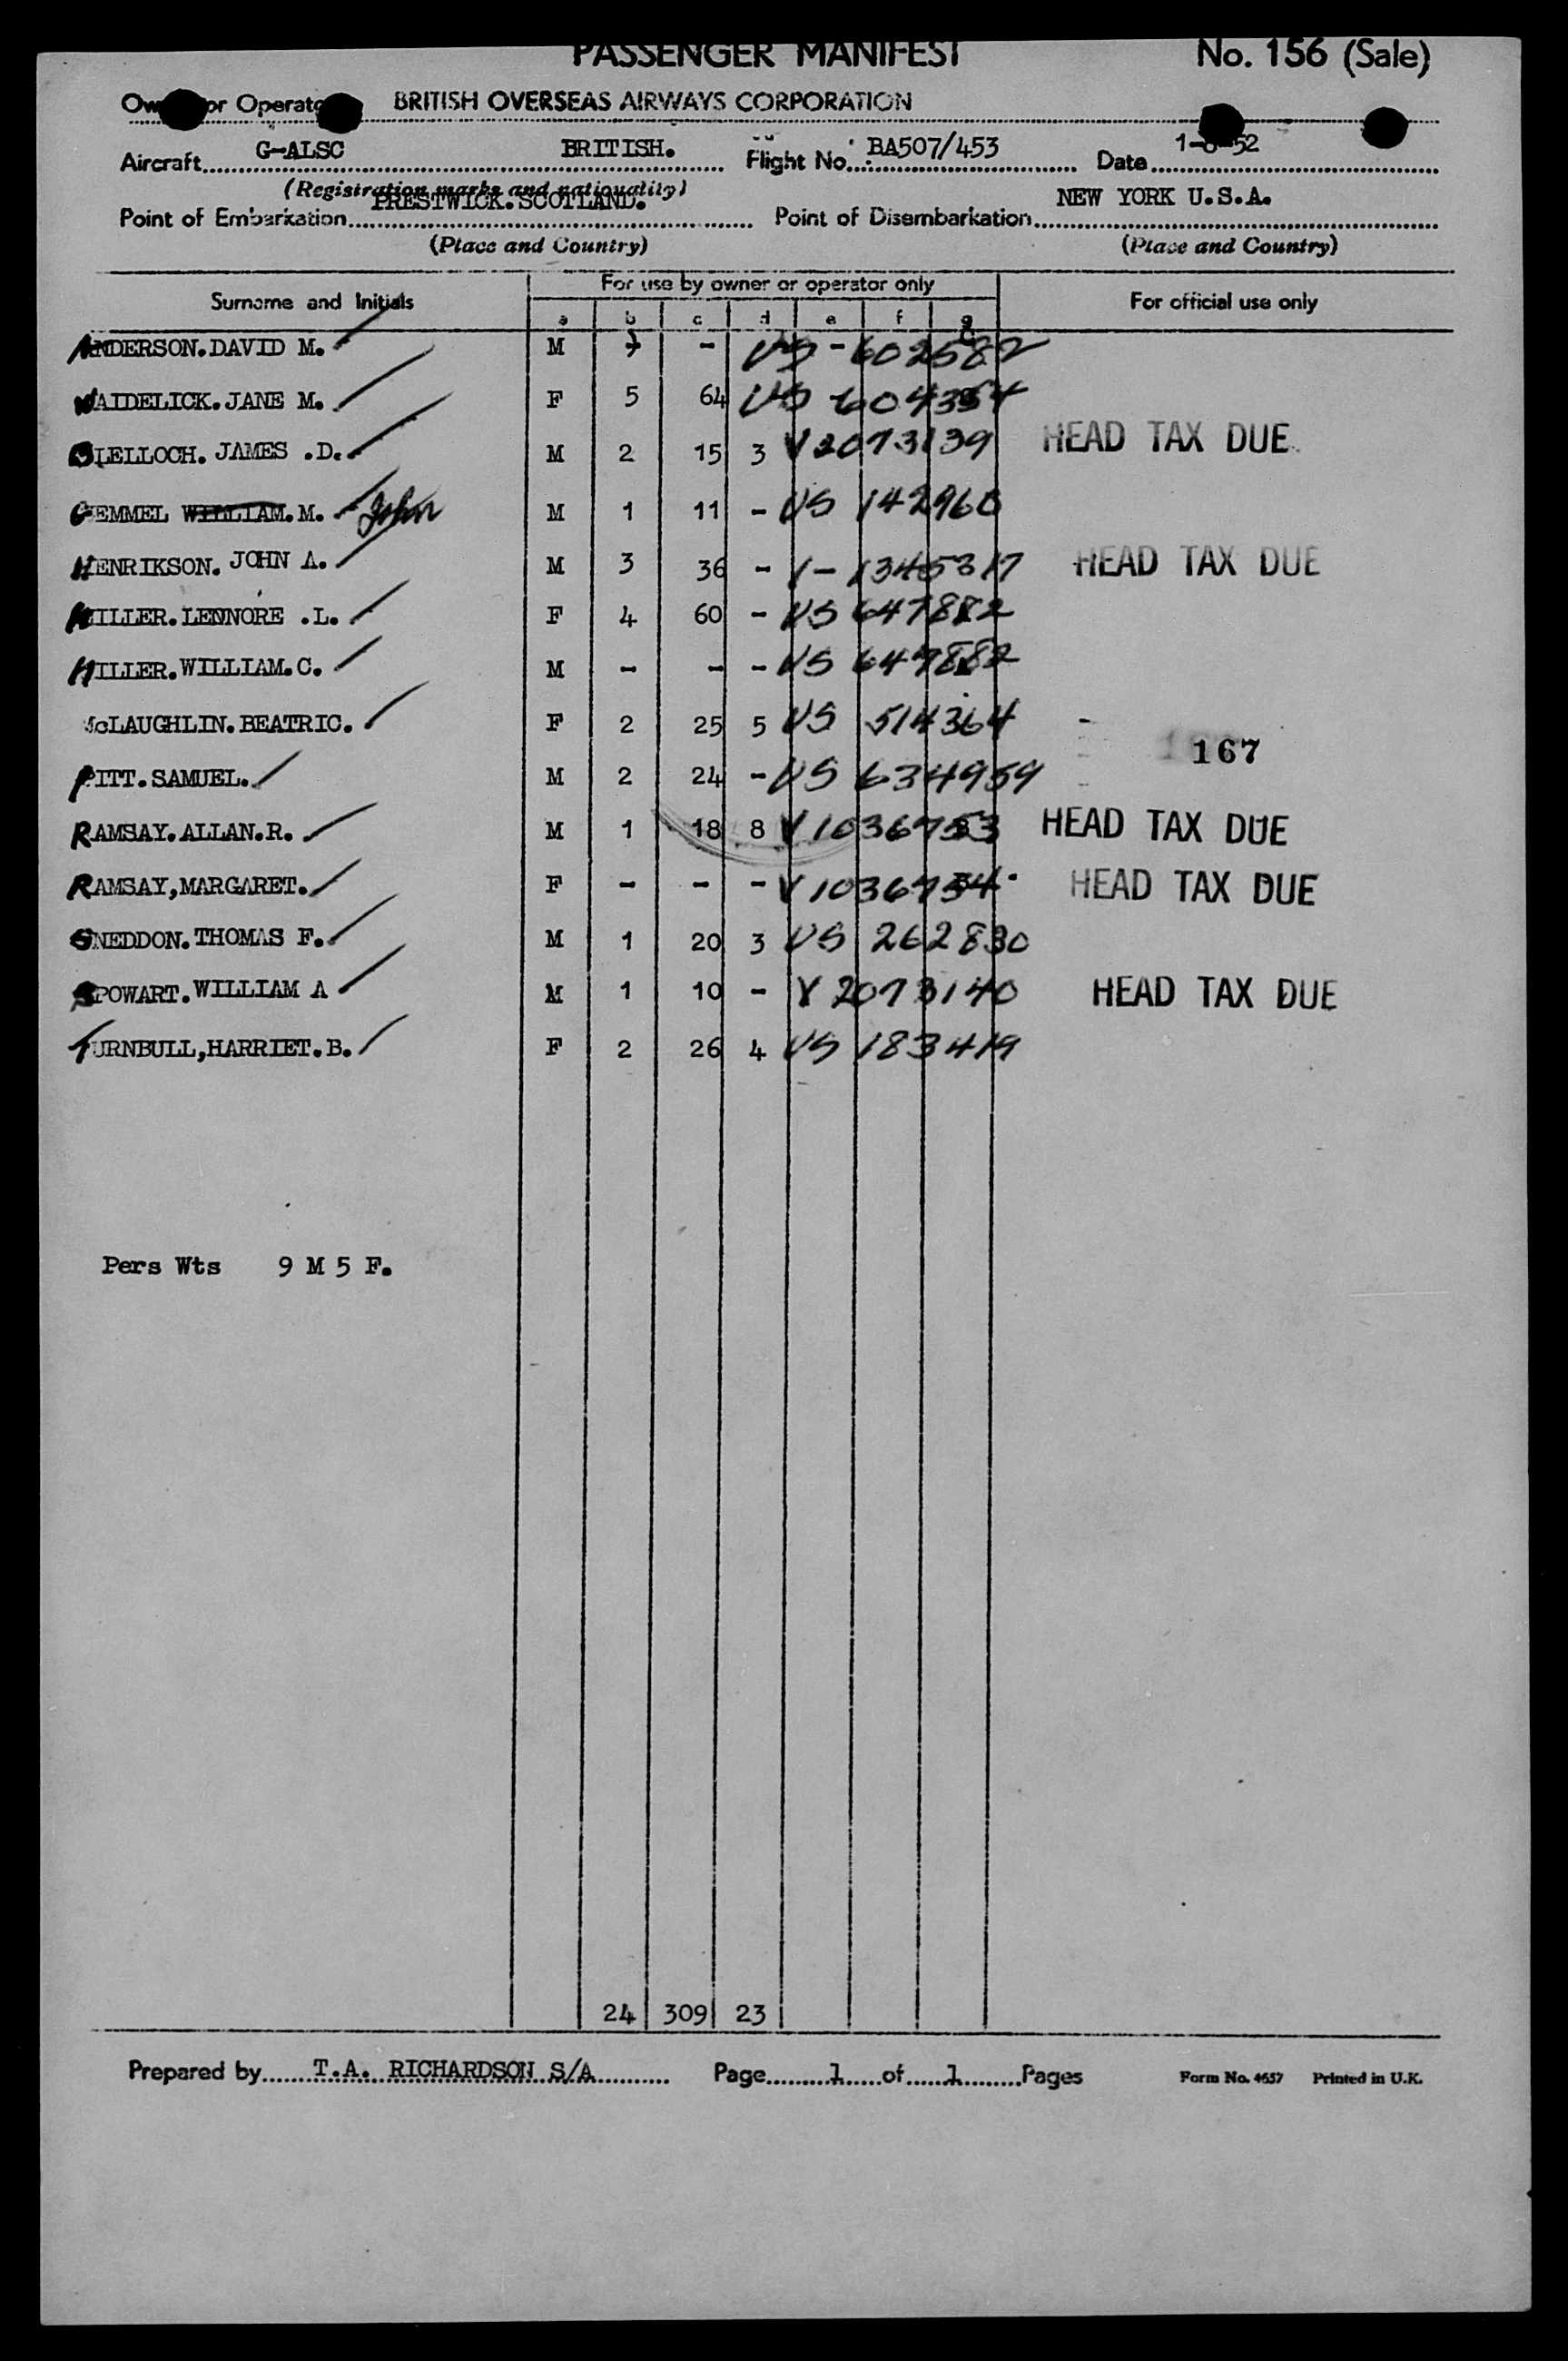 PASSENGER MANIFEST No. 156 (Sale)
or BRITISH OVERSEAS AIRWAYS CORPORATION
Aircraft G-ALSC BRITISH. Flight No. BA507/453 Date
(Registration marks and nationality)
Point of Embarkation PRESTWICK.SCOTLAND. Point of Disembarkation NEW YORK U.S.A.
(Place and Country) (Place and Country)
Surname and Initials For use by owner or operator only For official use only
a b c d e f g
ANDERSON.DAVID M. M - US - 602582
WAIDELICK.JANE M. F 5 64 US
JAMES .D. M 2 15 3 V2073139 HEAD TAX DUE
GEMMEL WILLIAM.M. John M 1 11 - US 142960
HENRIKSON. JOHN A. M 3 36 - 1-1345317 HEAD TAX DUE
LENNORE .L. F 4 60 - US 647882
WILLIAM.C. M - - - US 647882
McLAUGHLIN.BEATRIC. F 2 25 5 US 514364
167
PITT.SAMUEL. M 2 24 - US 634959
RAMSAY.ALLAN.R. M 1 18 8 V1036753 HEAD TAX DUE
RAMSAY,MARGARET. F - - - V1036754 HEAD TAX DUE
SNEDDON.THOMAS F. M 1 20 3 US 262830
SPOWART.WILLIAM A M 1 10 - V 2073140 HEAD TAX DUE
TURNBULL,HARRIET.B. F 2 26 4 US 183419
Pers Wts 9 M 5 F.
24 309 23
Prepared by T.A. RICHARDSON S/A Page 1 of 1 Pages Form No. 4657 Printed in U.K.